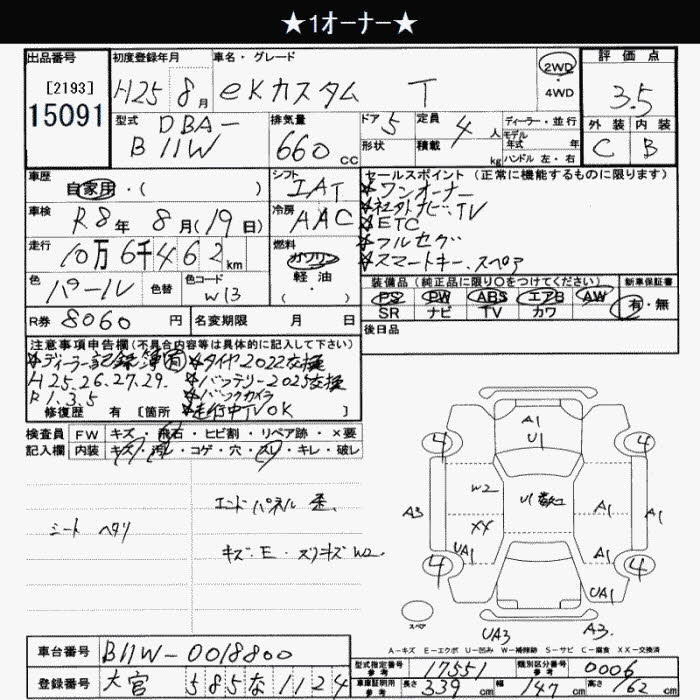 ★1オーナー★
出品番号
[2193]
15091
初度登録年月
H25年 8月
車名・グレード
eKカスタム T
2WD
・
4WD
評価点
3.5
外装 内装
C B
型式
DBA-
B11W
排気量
660 cc
ドア 5
形状
定員 4 人
積載 kg
ディーラー・並行
モデル
年式 年
ハンドル 左・右
車歴
自家用・( )
シフト
IAT
セールスポイント (正常に機能するものに限ります)
★ワンオーナー
★社外ナビ、TV
★ETC
★フルセグ
★スマートキー、スペア
車検
R8年 8月(19日)
冷房
AAC
走行
10万6千462km
燃料
ガソリン
軽・油
・( )
色
パール
色替
色コード
W13
装備品 (純正品に限り○をつけてください)
PS PW ABS エアB AW
SR ナビ TV カワ
新車保証書
有・無
R券 8060円
名変期限 月 日
後日品
注意事項申告欄(不具合内容等は具体的に記入して下さい)
★ディーラー記録簿有 ★タイヤ2022交換
H25.26.27.29. ★バッテリー2025交換
R1.3.5 ★バックカメラ
★走行中TVOK
修復歴 有 [箇所 ]
検査員
記入欄
FW キズ・飛石・ヒビ割・リペア跡・×要
内装 キズ・汚レ・コゲ・穴・スレ・キレ・破レ
シート ヘタリ
エンドパネル 歪
キズ・E・スリキズ W2
A1
U1
4
4
W2
XY
UA1
A3
U1
A1
A1
A1
4
4
UA1
UA3
A3
スペア
A-キズ E-エクボ U-凹み W-補修跡 S-サビ C-腐食 XX-交換済
車台番号 B11W-0018800
登録番号 大宮 585な1124
型式指定番号
参考
17551
類別区分番号
参考
0006
車庫証明用
参考
長さ 339cm 幅 147cm 高さ 162cm